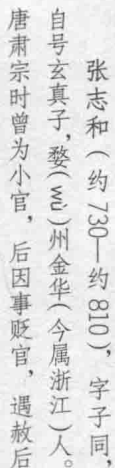 张志和(约730—约810),字子同,
自号玄真子,婺(wù)州金华(今属浙江)人。
唐肃宗时曾为小官,后因事贬官,遇赦后